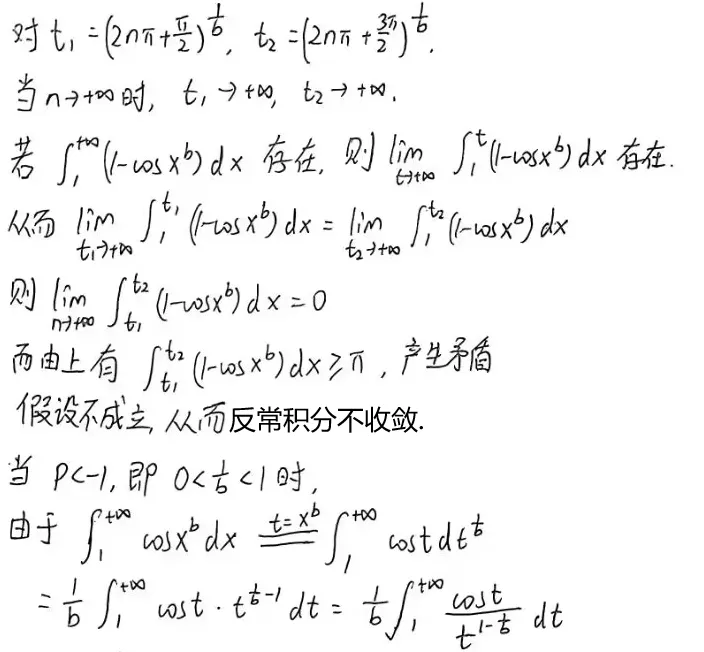 对 t₁ = (2nπ + π/2)^{1/b}, t₂ = (2nπ + 3π/2)^{1/b}.
当 n→+∞ 时, t₁→+∞, t₂→+∞.
若 ∫₁^{+∞} (1-cos x^b) dx 存在, 则 lim_{t→+∞} ∫₁^t (1-cos x^b) dx 存在.
从而 lim_{t₁→+∞} ∫₁^{t₁} (1-cos x^b) dx = lim_{t₂→+∞} ∫₁^{t₂} (1-cos x^b) dx
则 lim_{n→+∞} ∫_{t₁}^{t₂} (1-cos x^b) dx = 0
而由上有 ∫_{t₁}^{t₂} (1-cos x^b) dx ≥ π, 产生矛盾
假设不成立, 从而反常积分不收敛.
当 P<-1, 即 0<1/b<1 时,
由于 ∫₁^{+∞} cos x^b dx \xlongequal{t=x^b} ∫₁^{+∞} cos t dt^{1/b}
= 1/b ∫₁^{+∞} cos t · t^{1/b - 1} dt = 1/b ∫₁^{+∞} cos t / t^{1-1/b} dt